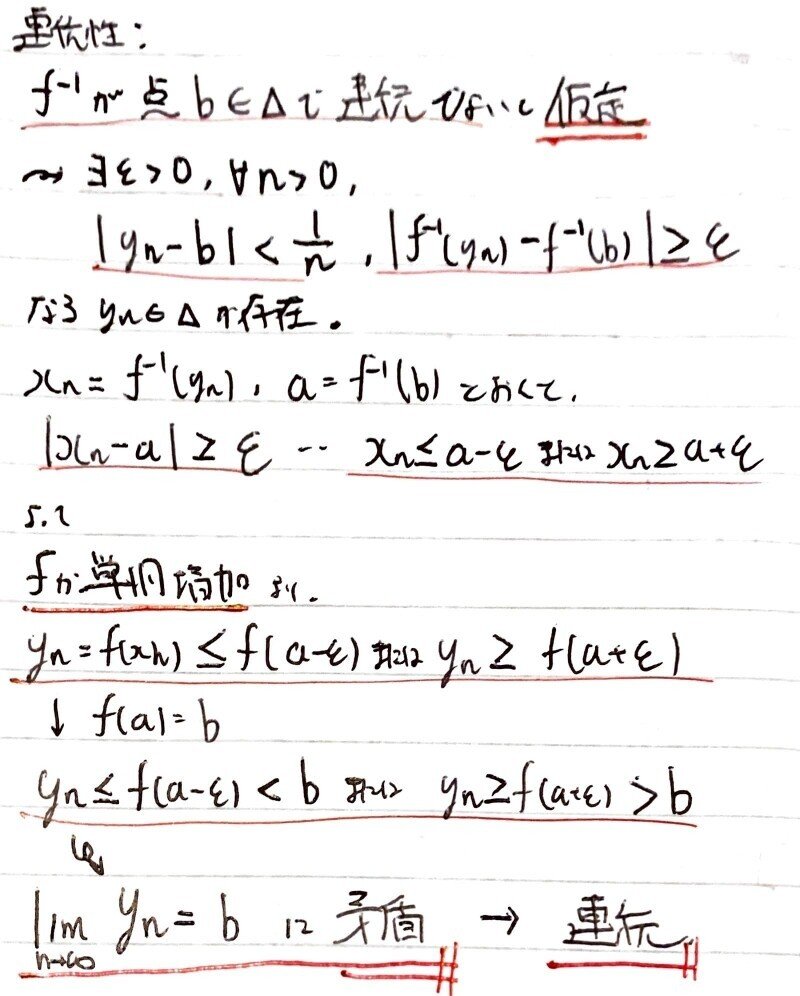 連続性:
f⁻¹が点b∈Δで連続でないと仮定
⇝ ∃ε>0, ∀n>0,
|yₙ-b|<1/n , |f⁻¹(yₙ)-f⁻¹(b)|≥ε
なるyₙ∈Δが存在.
xₙ=f⁻¹(yₙ), a=f⁻¹(b)とおくて,
|xₙ-a|≥ε … xₙ≤a-ε または xₙ≥a+ε
よって
fが単調増加より.
yₙ=f(xₙ)≤f(a-ε) または yₙ≥f(a+ε)
↓ f(a)=b
yₙ≤f(a-ε)<b または yₙ≥f(a+ε)>b
lim n→∞ yₙ=b に矛盾 → 連続